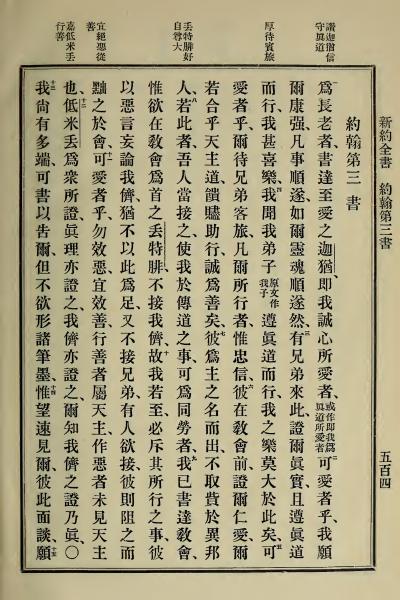 新約全書 約翰第三書
五百四
讚迦猶信
守眞道
厚待賓旅
丢特腓好
自尊大
宜絕惡從
善
嘉低米丢
行善
約翰第三書
一爲長老者書達至愛之迦猶、卽我誠心所愛者、或作卽我爲眞道所愛者二可愛者乎、我願
爾康强、凡事順遂、如爾靈魂順遂然、三有兄弟來此、證爾眞實、且遵眞道
而行、我甚喜樂、四我聞我弟子原文作我子遵眞道而行、我之樂莫大於此矣、五可
愛者乎、爾待兄弟客旅、凡爾所行者、惟忠信、六彼在敎會前、證爾仁愛、爾
若合乎天主道、饋贐助行、誠爲善矣、七彼爲主之名而出、不取貲於異邦
人、八若此者、吾人當接之、使我於傳道之事、可爲同勞者、九我已書達敎會、
惟欲在敎會爲首之丢特腓、不接我儕、十故我若至、必斥其所行之事、彼
以惡言妄論我儕、猶不以此爲足、又不接兄弟、有人欲接、彼則阻之、而
黜之於會、十一可愛者乎、勿效惡、宜效善、行善者屬天主、作惡者未見天主
也、十二低米丢爲衆所證、眞理亦證之、我儕亦證之、爾知我儕之證乃眞、〇
十三我尙有多端可書以告爾、但不欲形諸筆墨、十四惟望速見爾、彼此面談、十五願